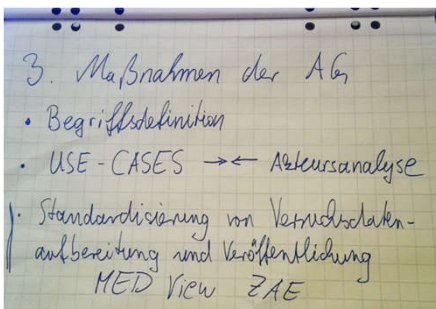 3. Maßnahmen der AG
• Begriffsdefinition
• USE-CASES →← Akteursanalyse
• Standardisierung von Versuchsdaten-
aufbereitung und Veröffentlichung
MED View ZAE